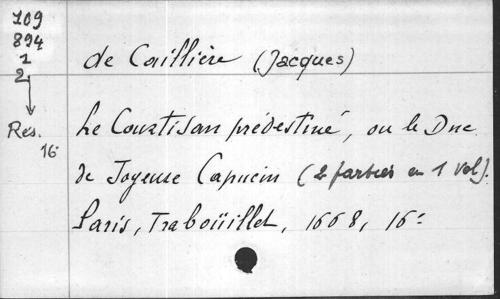 109
894
1
2
Res.
16
de Caillière (Jacques)
Le Courtisan prédestiné, ou le Duc
de Joyeuse Capucin (2 parties en 1 vol).
Paris, Traboüillet, 1668, 16º